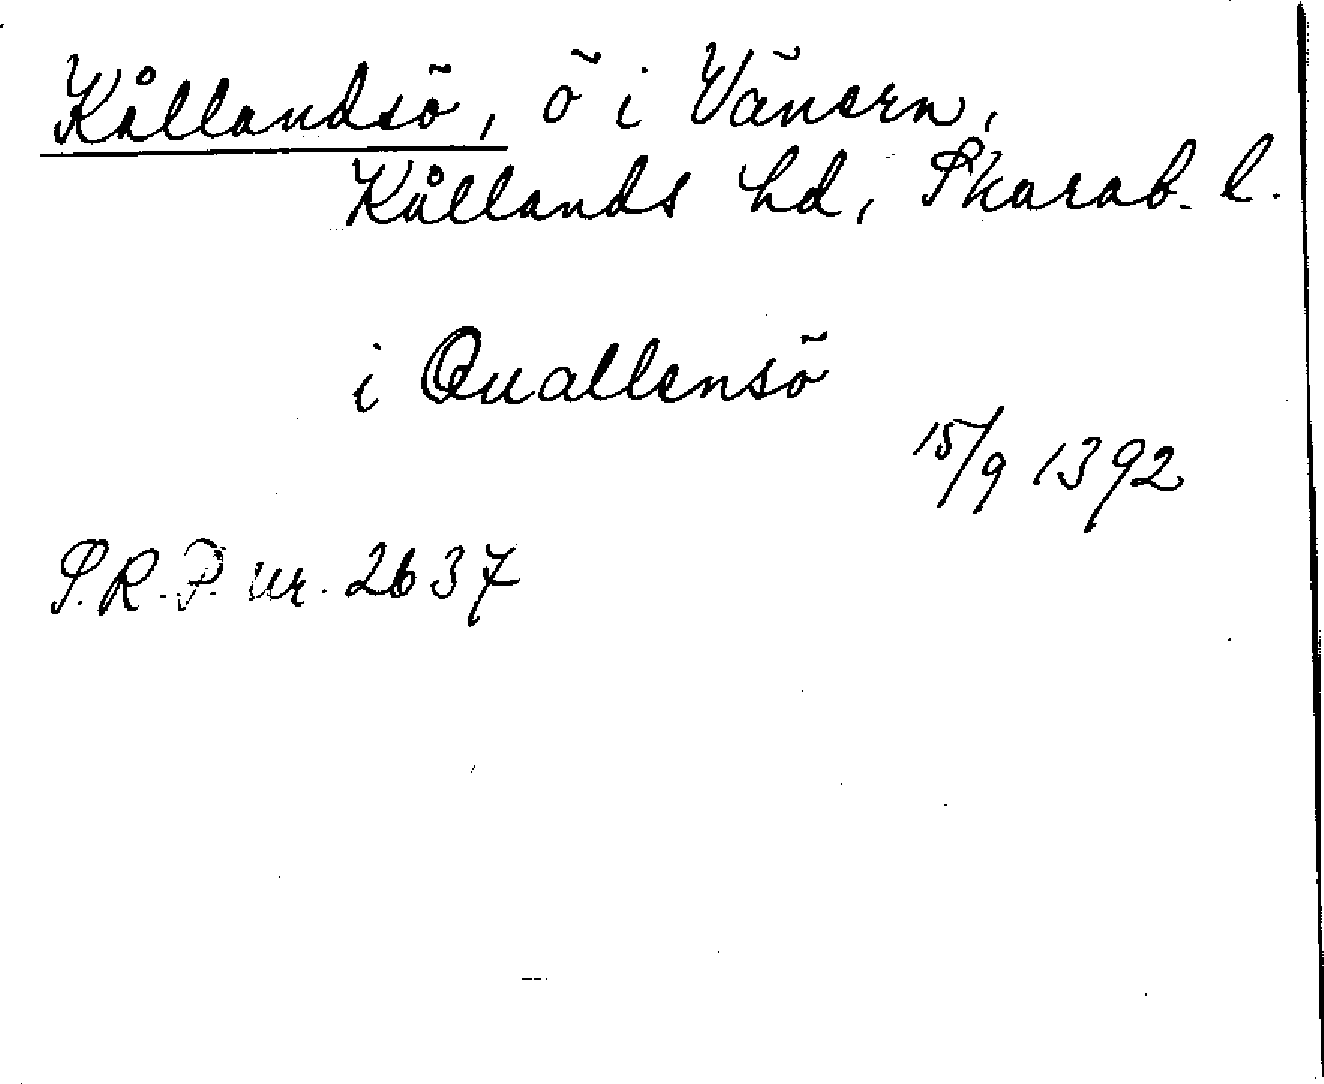 Kållandsö, ö i Vänern,
Kållands hd, Skarab. l.
i Quallensö
15/9 1392
S.R.P. nr. 2637